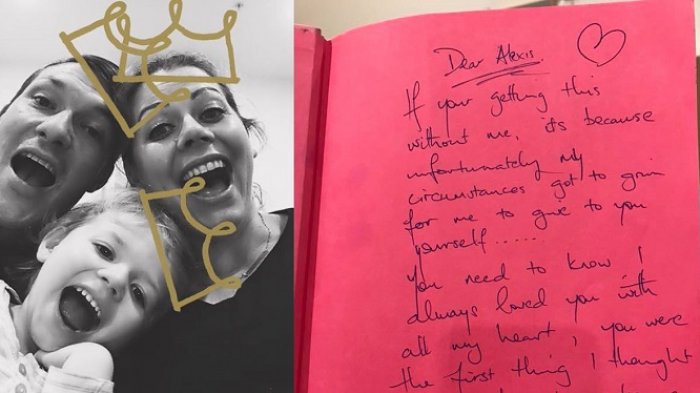 Dear Alexis
If your getting this
without me, its because
unfortunately my
circumstances got to grim
for me to give to you
yourself......
You need to know I
always loved you with
all my heart, you were
the first thing I thought